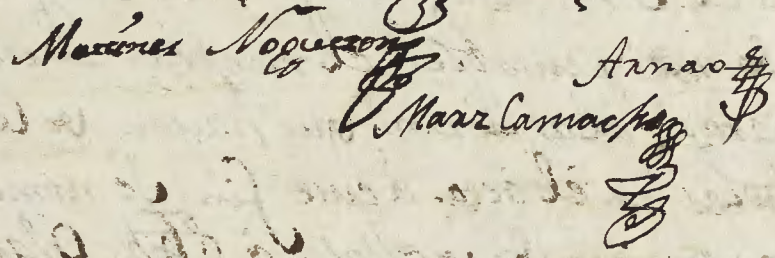 Martines Nogueron
Arnao
Marz Camacho